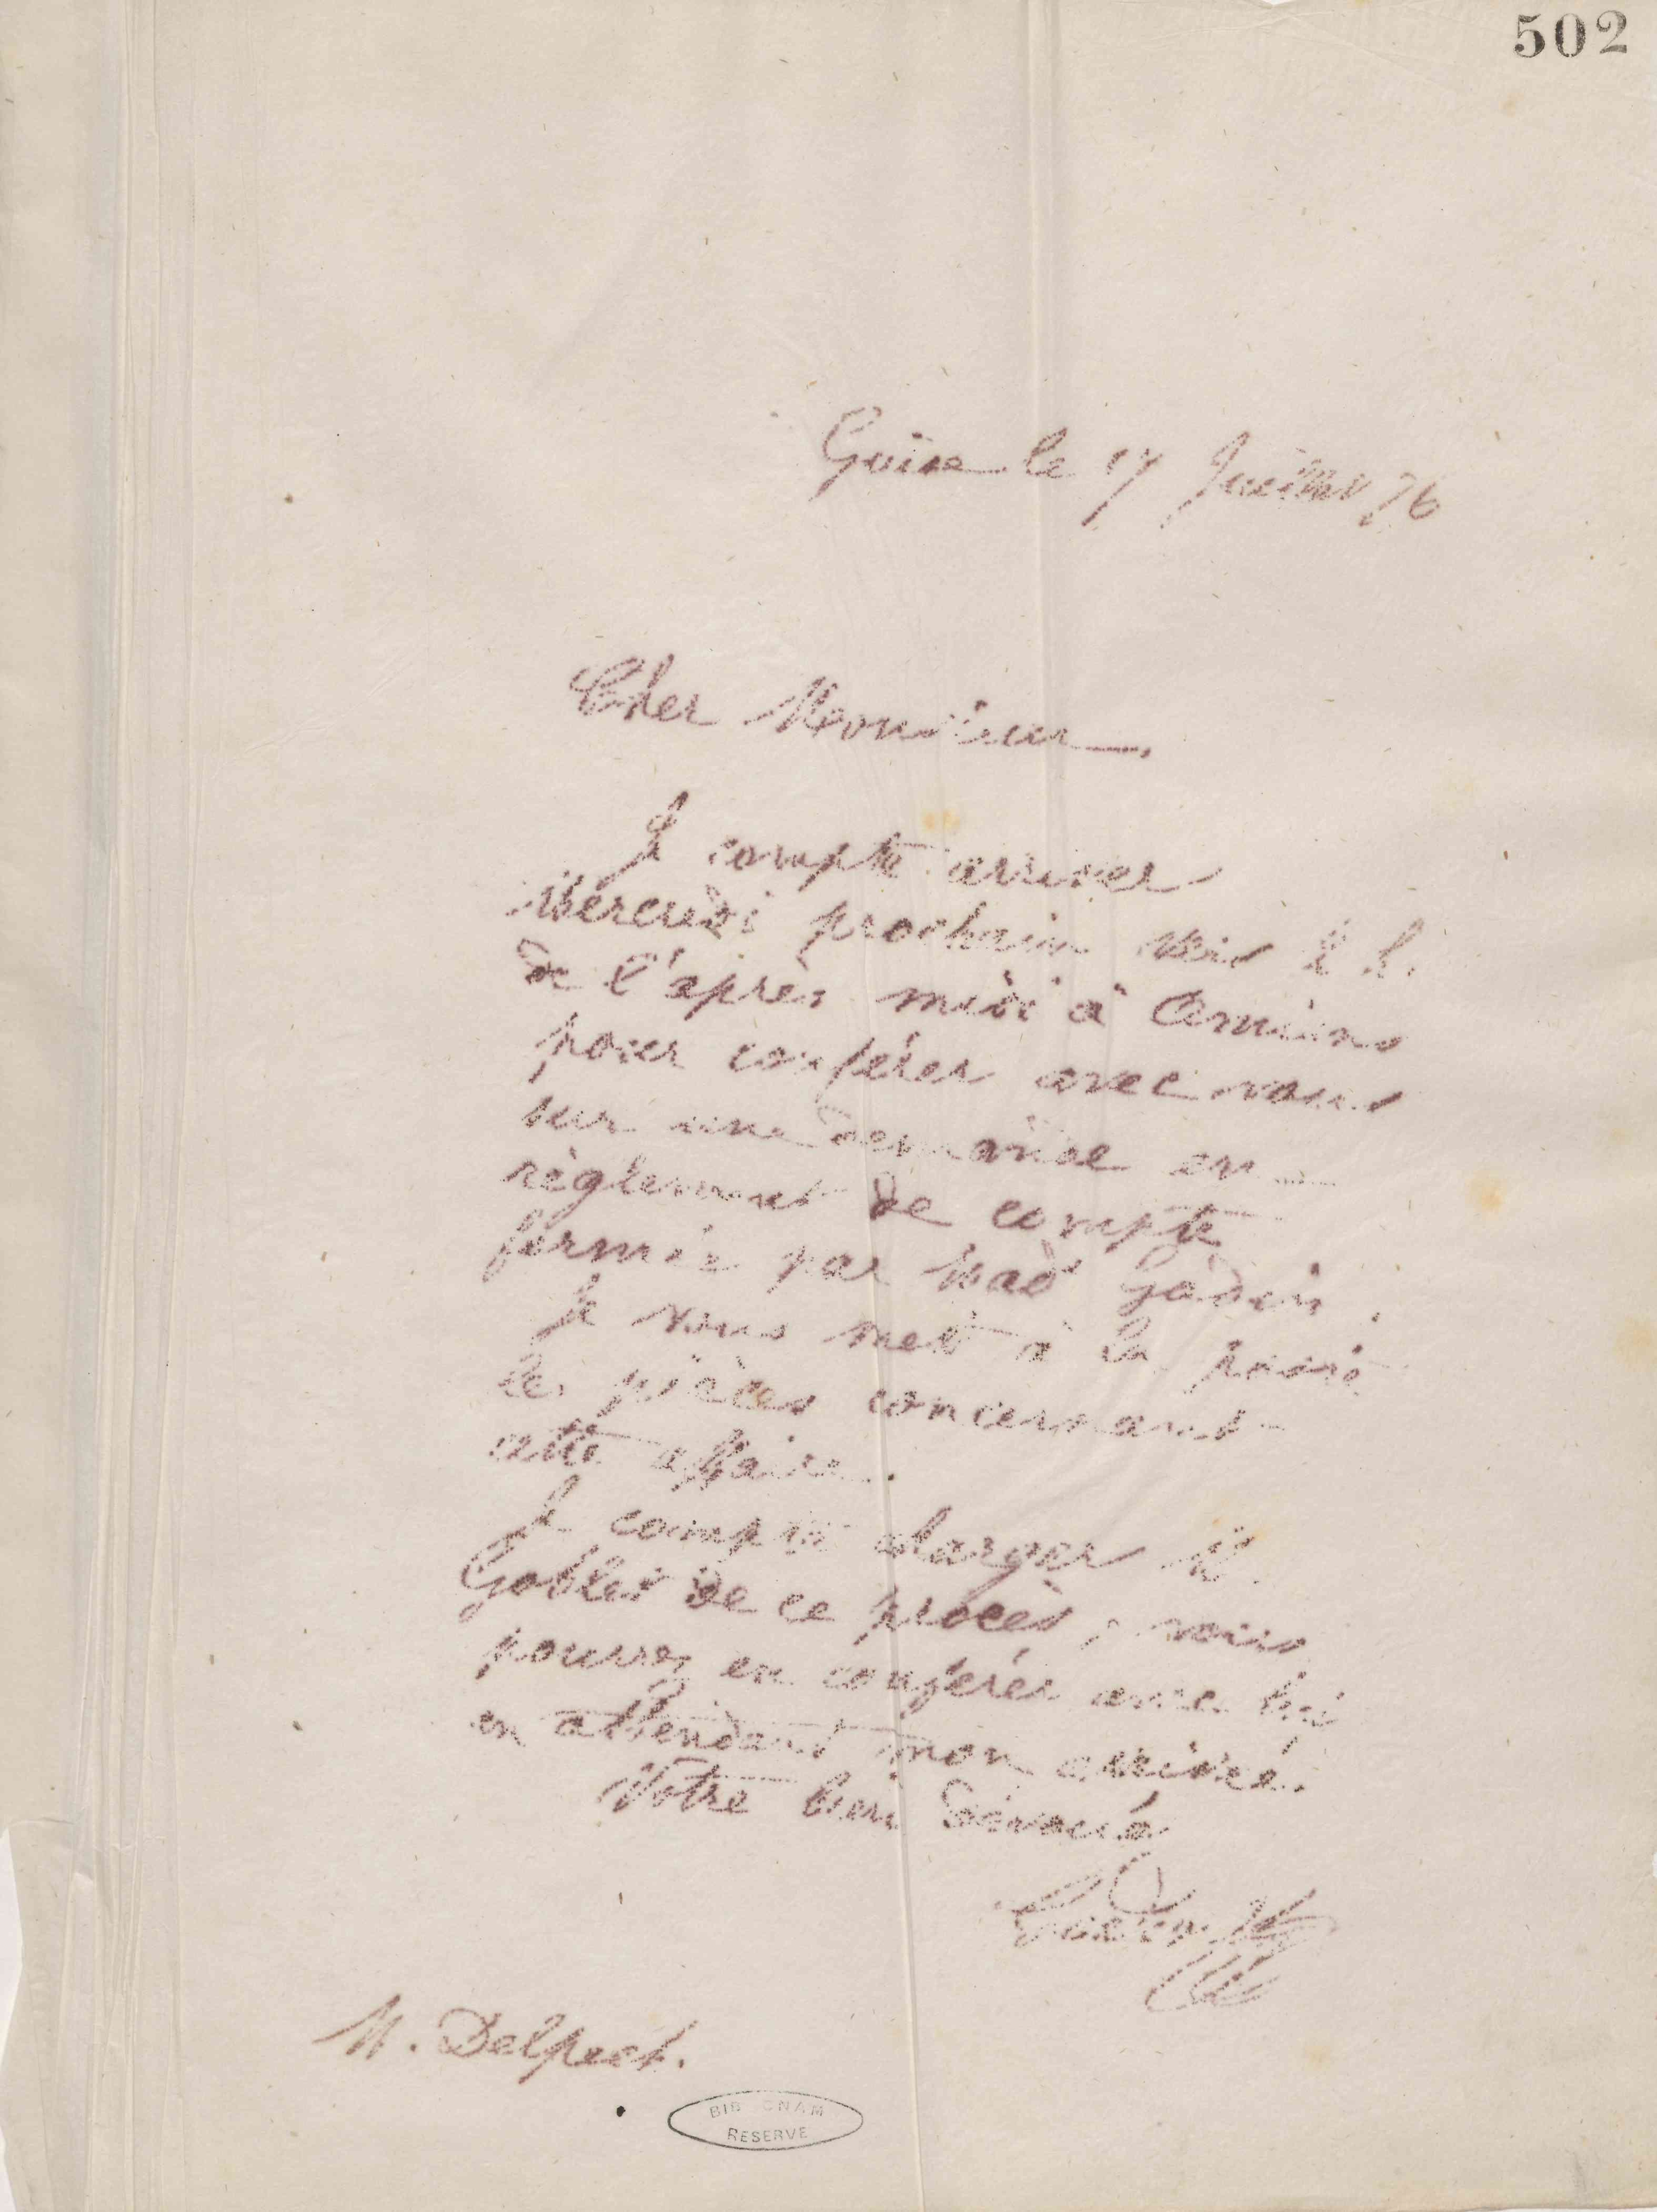 502
Guise le 17 Juillet 76
Cher Monsieur,
Je compte arriver
Mercredi prochain vers h.
de l'après midi à Amiens
pour conférer avec vous
sur une demande en
règlement de compte
formée par Mad Godin.
Je vous met à la poste
les pièces concernant
cette affaire.
Je compte charger M.
Goblet de ce procès, vous
pourrez en conférer avec lui
en attendant mon arrivée.
Votre bien dévoué
Godin
M. Delpech.
BIB CNAM
RESERVE